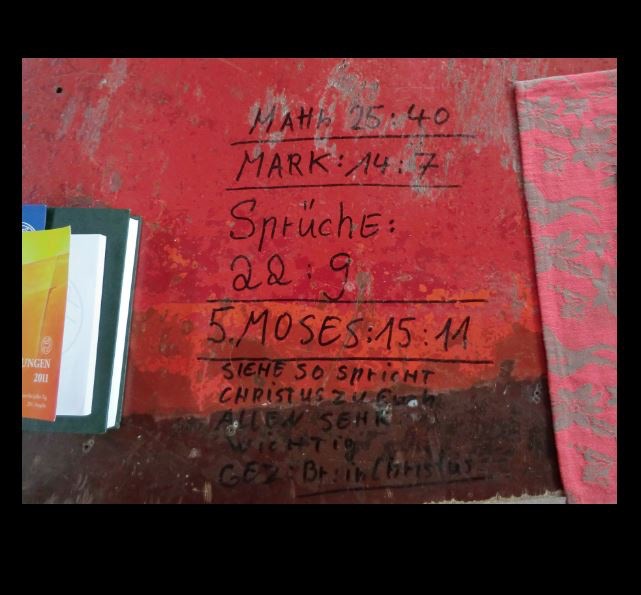 MAHh 25:40
MARK:14:7
Sprüche:
22:9
5.MOSES:15:11
SIEHE SO SpricHT
CHRISTUS ZU Euch
ALLEN SEHR
WicHTig
GEZ: Br: in Christus
UNGEN
2011